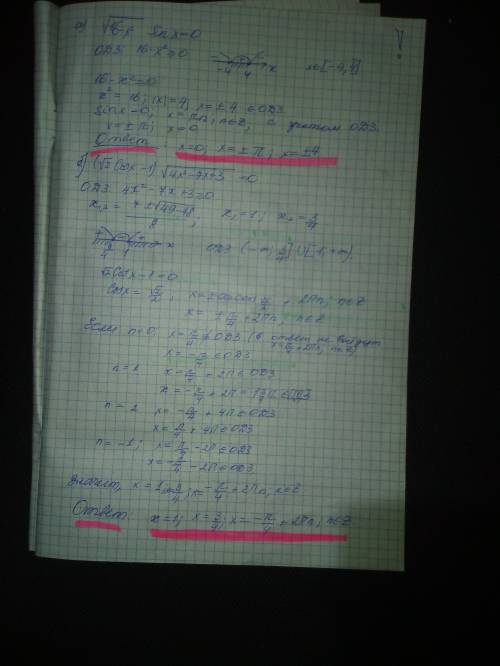 а) √16-x² sin x=0
ОДЗ: 16-x²≥0
-4 4 x x∈[-4,4]
16-x²=0
x²=16; |x|=4, x=±4 ∈ОДЗ
sin x=0, x=πn, n∈Z, с учетом ОДЗ:
x=±π; x=0
Ответ: x=0; x=±π; x=±4
б) (√2cosx-1)√4x²-7x+3=0
ОДЗ: 4x²-7x+3≥0
x₁,₂= 7±√49-48/8; x₁=1; x₂=3/4
3/4 1 x ОДЗ (-∞; 3/4]∪[1,+∞).
√2cosx-1=0
cosx=√2/2; x=±arccos√2/2+2πn; n∈Z
x=±π/4+2πn, n∈Z
Если n=0, x=π/4∉ОДЗ (в ответ не войдет
x=-π/4∈ОДЗ
n=1 x=π/4+2π∈ОДЗ
x=-π/4+2π=
n=2 x=-π/4+4π∈ОДЗ
x=π/4+4π∈ОДЗ
n=-1; x=π/4-2π∈ОДЗ
x=-π/4-2π∈ОДЗ
Значит, x=1; x=3/4; x=-π/4+2πn, n∈Z
Ответ: x=1; x=3/4; x=-π/4+2πn, n∈Z